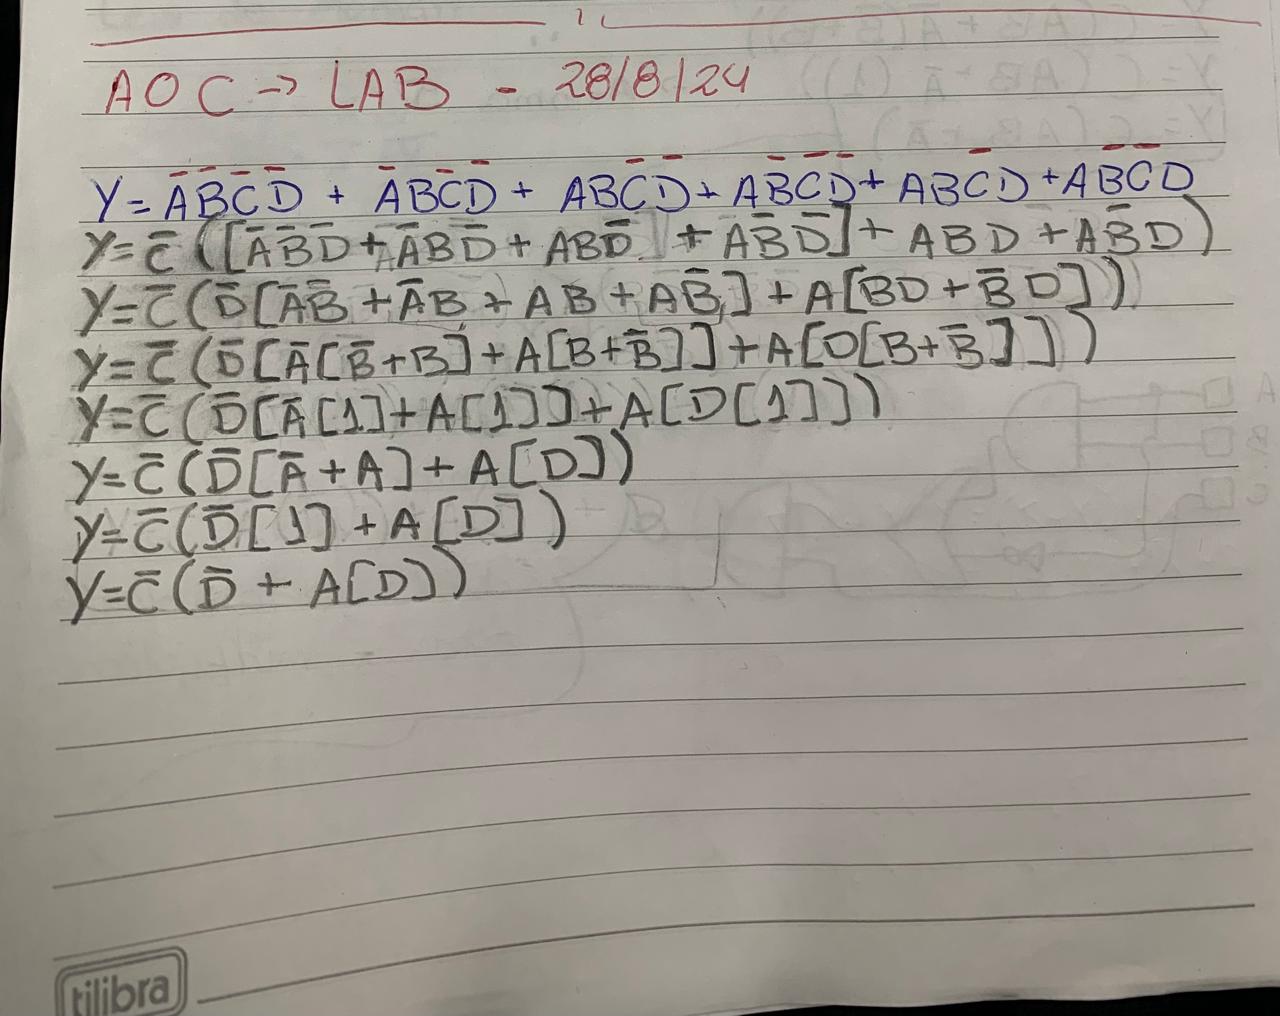 AOC → LAB - 28/8/24
Y = A̅B̅C̅D̅ + A̅BC̅D̅ + ABC̅D̅ + AB̅C̅D̅ + ABC̅D + AB̅C̅D
Y = C̅([A̅B̅D̅ + A̅BD̅ + ABD̅ + AB̅D̅] + ABD + AB̅D)
Y = C̅(D̅[A̅B̅ + A̅B + AB + AB̅] + A[BD + B̅D]))
Y = C̅(D̅[A̅[B̅+B] + A[B+B̅]] + A[D[B+B̅]]))
Y = C̅(D̅[A̅[1] + A[1]] + A[D[1]]))
Y = C̅(D̅[A̅ + A] + A[D])
Y = C̅(D̅[1] + A[D])
Y = C̅(D̅ + A[D])
tilibra